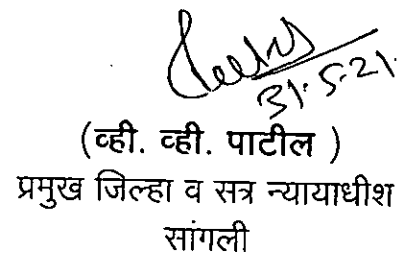 31.5.21.
(व्ही. व्ही. पाटील )
प्रमुख जिल्हा व सत्र न्यायाधीश
सांगली